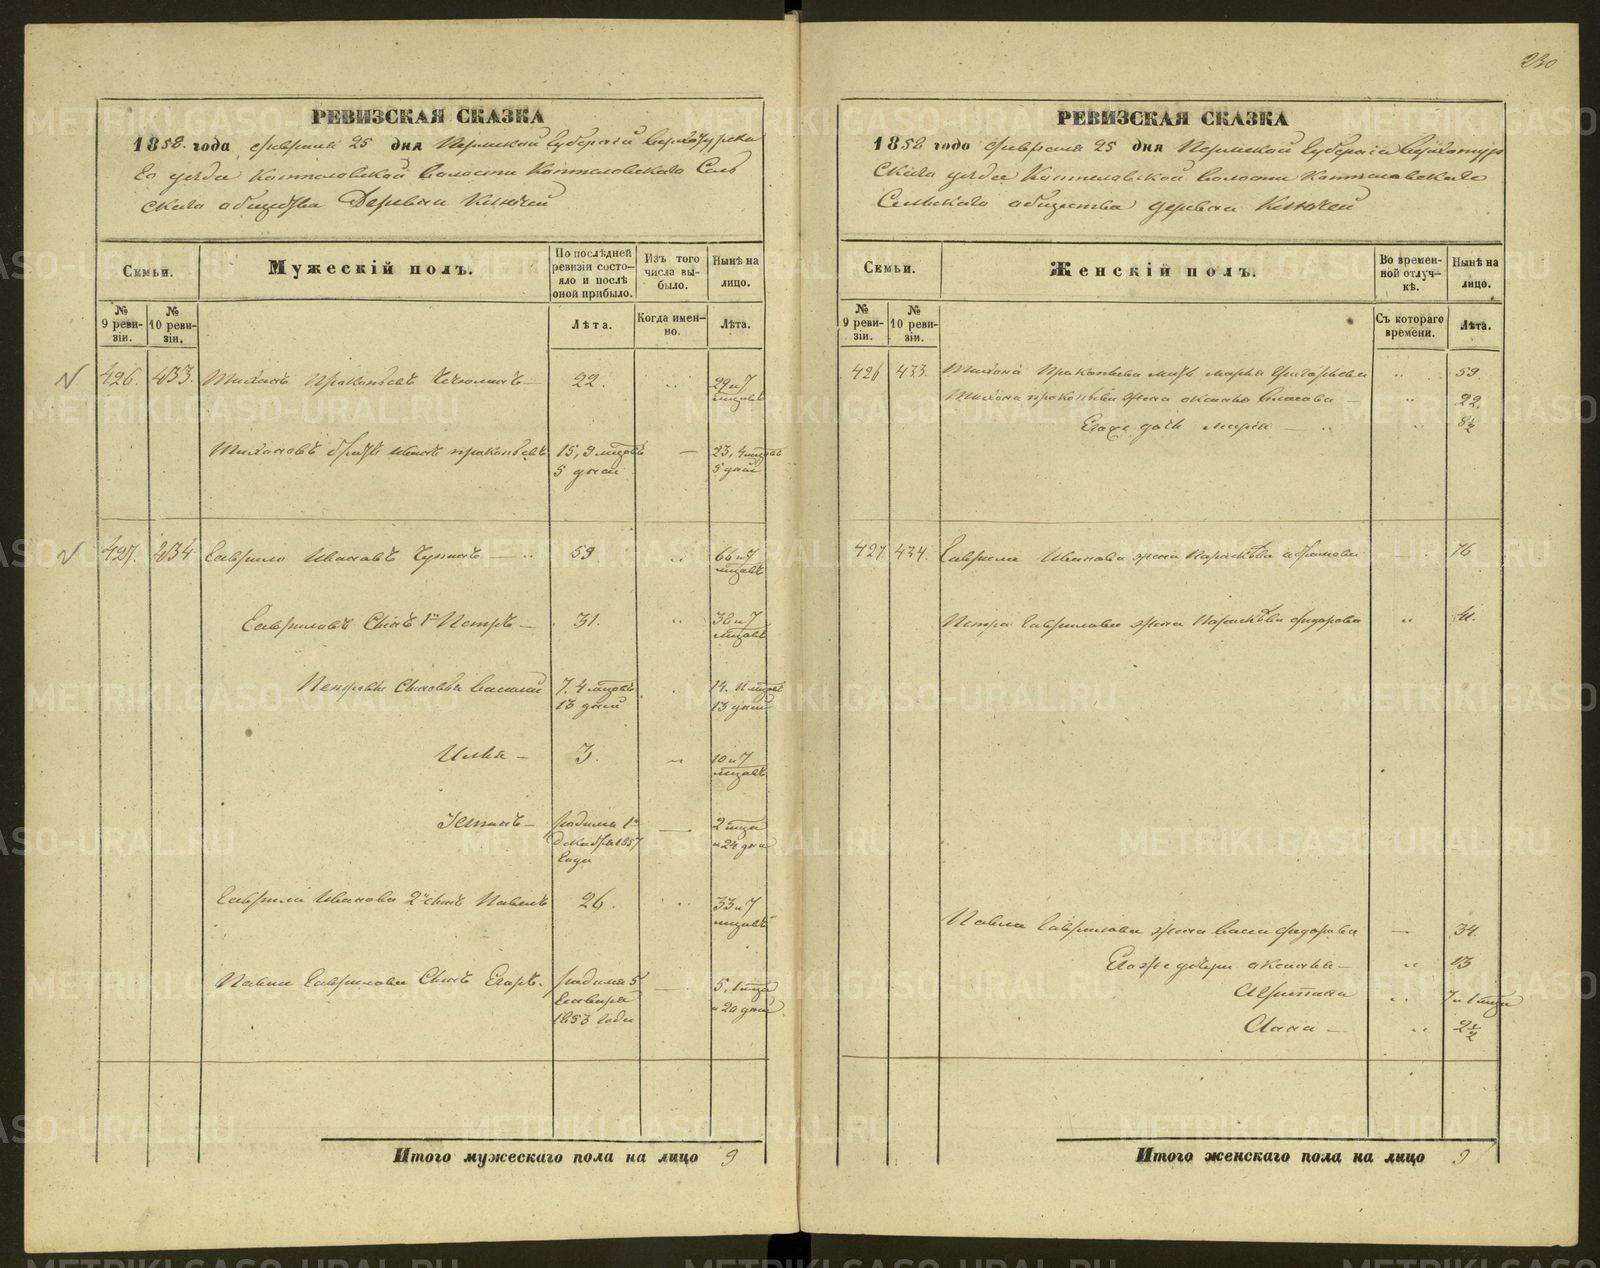 230
РЕВИЗСКАЯ СКАЗКА
1858 года февраля 25 дня Пермской Губернiи Верхотурска
го уезда Коптеловской Волости Коптеловскаго Сель
скаго общества Деревни Ключей
Семьи.
Мужескiй полъ.
По послѣдней ревизiи состо-
яло и послѣ оной прибыло.
Изъ того числа вы-
было.
Нынѣ на лицо.
№ 9 реви-
зiи.
№ 10 реви-
зiи.
Лѣта.
Когда имен-
но.
Лѣта.
426. 433. Тихонъ Прокопьевъ 22. 29 и 7
мцовъ
Тихоновъ братъ Иванъ прокопьевъ 15, 9 мцовъ 23, 4 мцовъ
5 дней 5 дней
427. 434 Гаврило Ивановъ 59. 66 и 7
мцовъ
Гавриловъ Сынъ 1й Петръ 31. 38 и 7
мцовъ
Петровы Сыновья Василiй 7. 4 мцовъ 14. 11 мцовъ
13 дней 13 дней
Илья 3. 10 и 7
мцовъ
Устинъ родился 1го 2 мца
декабря 1857 и 24 дня
года
Гаврила Иванова 2й сынъ Павелъ 26. 33 и 7
мцовъ
Павла Гаврилова Сынъ Егоръ. родился 5 5, 1 мца
Генваря и 20 дней
1853 года
Итого мужескаго пола на лицо 9
РЕВИЗСКАЯ СКАЗКА
1858 года февраля 25 дня Пермской Губернiи Верхотур
скаго уезда Коптеловской Волости Коптеловскаго
Сельскаго общества деревни Ключей
Семьи.
Женскiй полъ.
Во времен-
ной отлуч-
кѣ.
Нынѣ на лицо.
№ 9 реви-
зiи.
№ 10 реви-
зiи.
Съ котораго времени.
Лѣта.
426 433. Тихона Прокопьева мать Марья Григорьева 59.
Тихона прокопьева жена аксинья Власова 22.
Егоже дочь Марiя 8½
427 434. Гаврила Иванова жена Парасковья 76
Петра Гаврилова жена Парасковья Федорова 41.
Павла Гаврилова жена Федорова 34.
Егоже дочери аксинья 13
7 и 1 мца
Анна 2½
Итого женскаго пола на лицо 9
METRIKI.GASO-URAL.RU